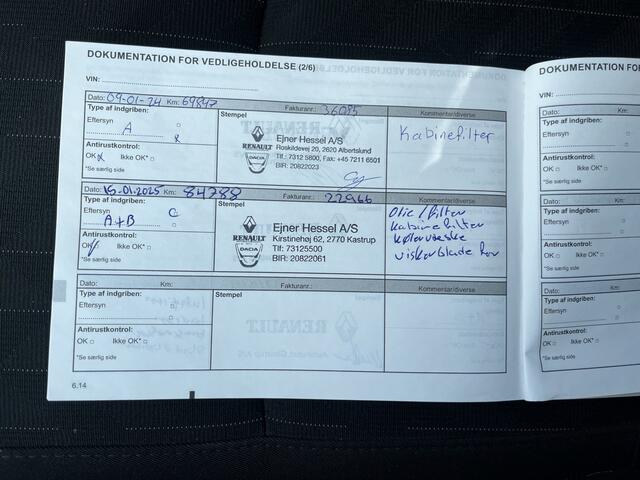 DOKUMENTATION FOR VEDLIGEHOLDELSE (2/6)
VIN:
Dato: 09-01-24 Km: 69847 Fakturanr.: 36085
Type af indgriben:
Eftersyn
A
Antirustkontrol:
OK Ikke OK*
*Se særlig side
Stempel
RENAULT
DACIA
Ejner Hessel A/S
Roskildevej 20, 2620 Albertslund
Tlf: 7312 5800, Fax: +45 7211 6501
BIR: 20822023
Kommentar/diverse
Kabinefilter
Dato: 15.01.2025 Km: 84288 Fakturanr.: 22966
Type af indgriben:
Eftersyn
A+B
Antirustkontrol:
OK Ikke OK*
*Se særlig side
Stempel
RENAULT
DACIA
Ejner Hessel A/S
Kirstinehøj 62, 2770 Kastrup
Tlf: 73125500
BIR: 20822061
Kommentar/diverse
Olie/filter
Kabinefilter
Kølervæske
viskerblade for
Dato: Km: Fakturanr.:
Type af indgriben:
Eftersyn
Antirustkontrol:
OK Ikke OK*
*Se særlig side
Stempel
Kommentar/diverse
6.14
DOKUMENTATION FO
VIN:
Dato:
Type af indgriben:
Eftersyn
Antirustkontrol:
OK Ikke OK*
*Se særlig side
Dato:
Type af indgriben:
Eftersyn
Antirustkontrol:
OK Ikke OK*
*Se særlig side
Dato:
Type af indgriben:
Eftersyn
Antirustkontrol:
OK Ikke OK*
*Se særlig side